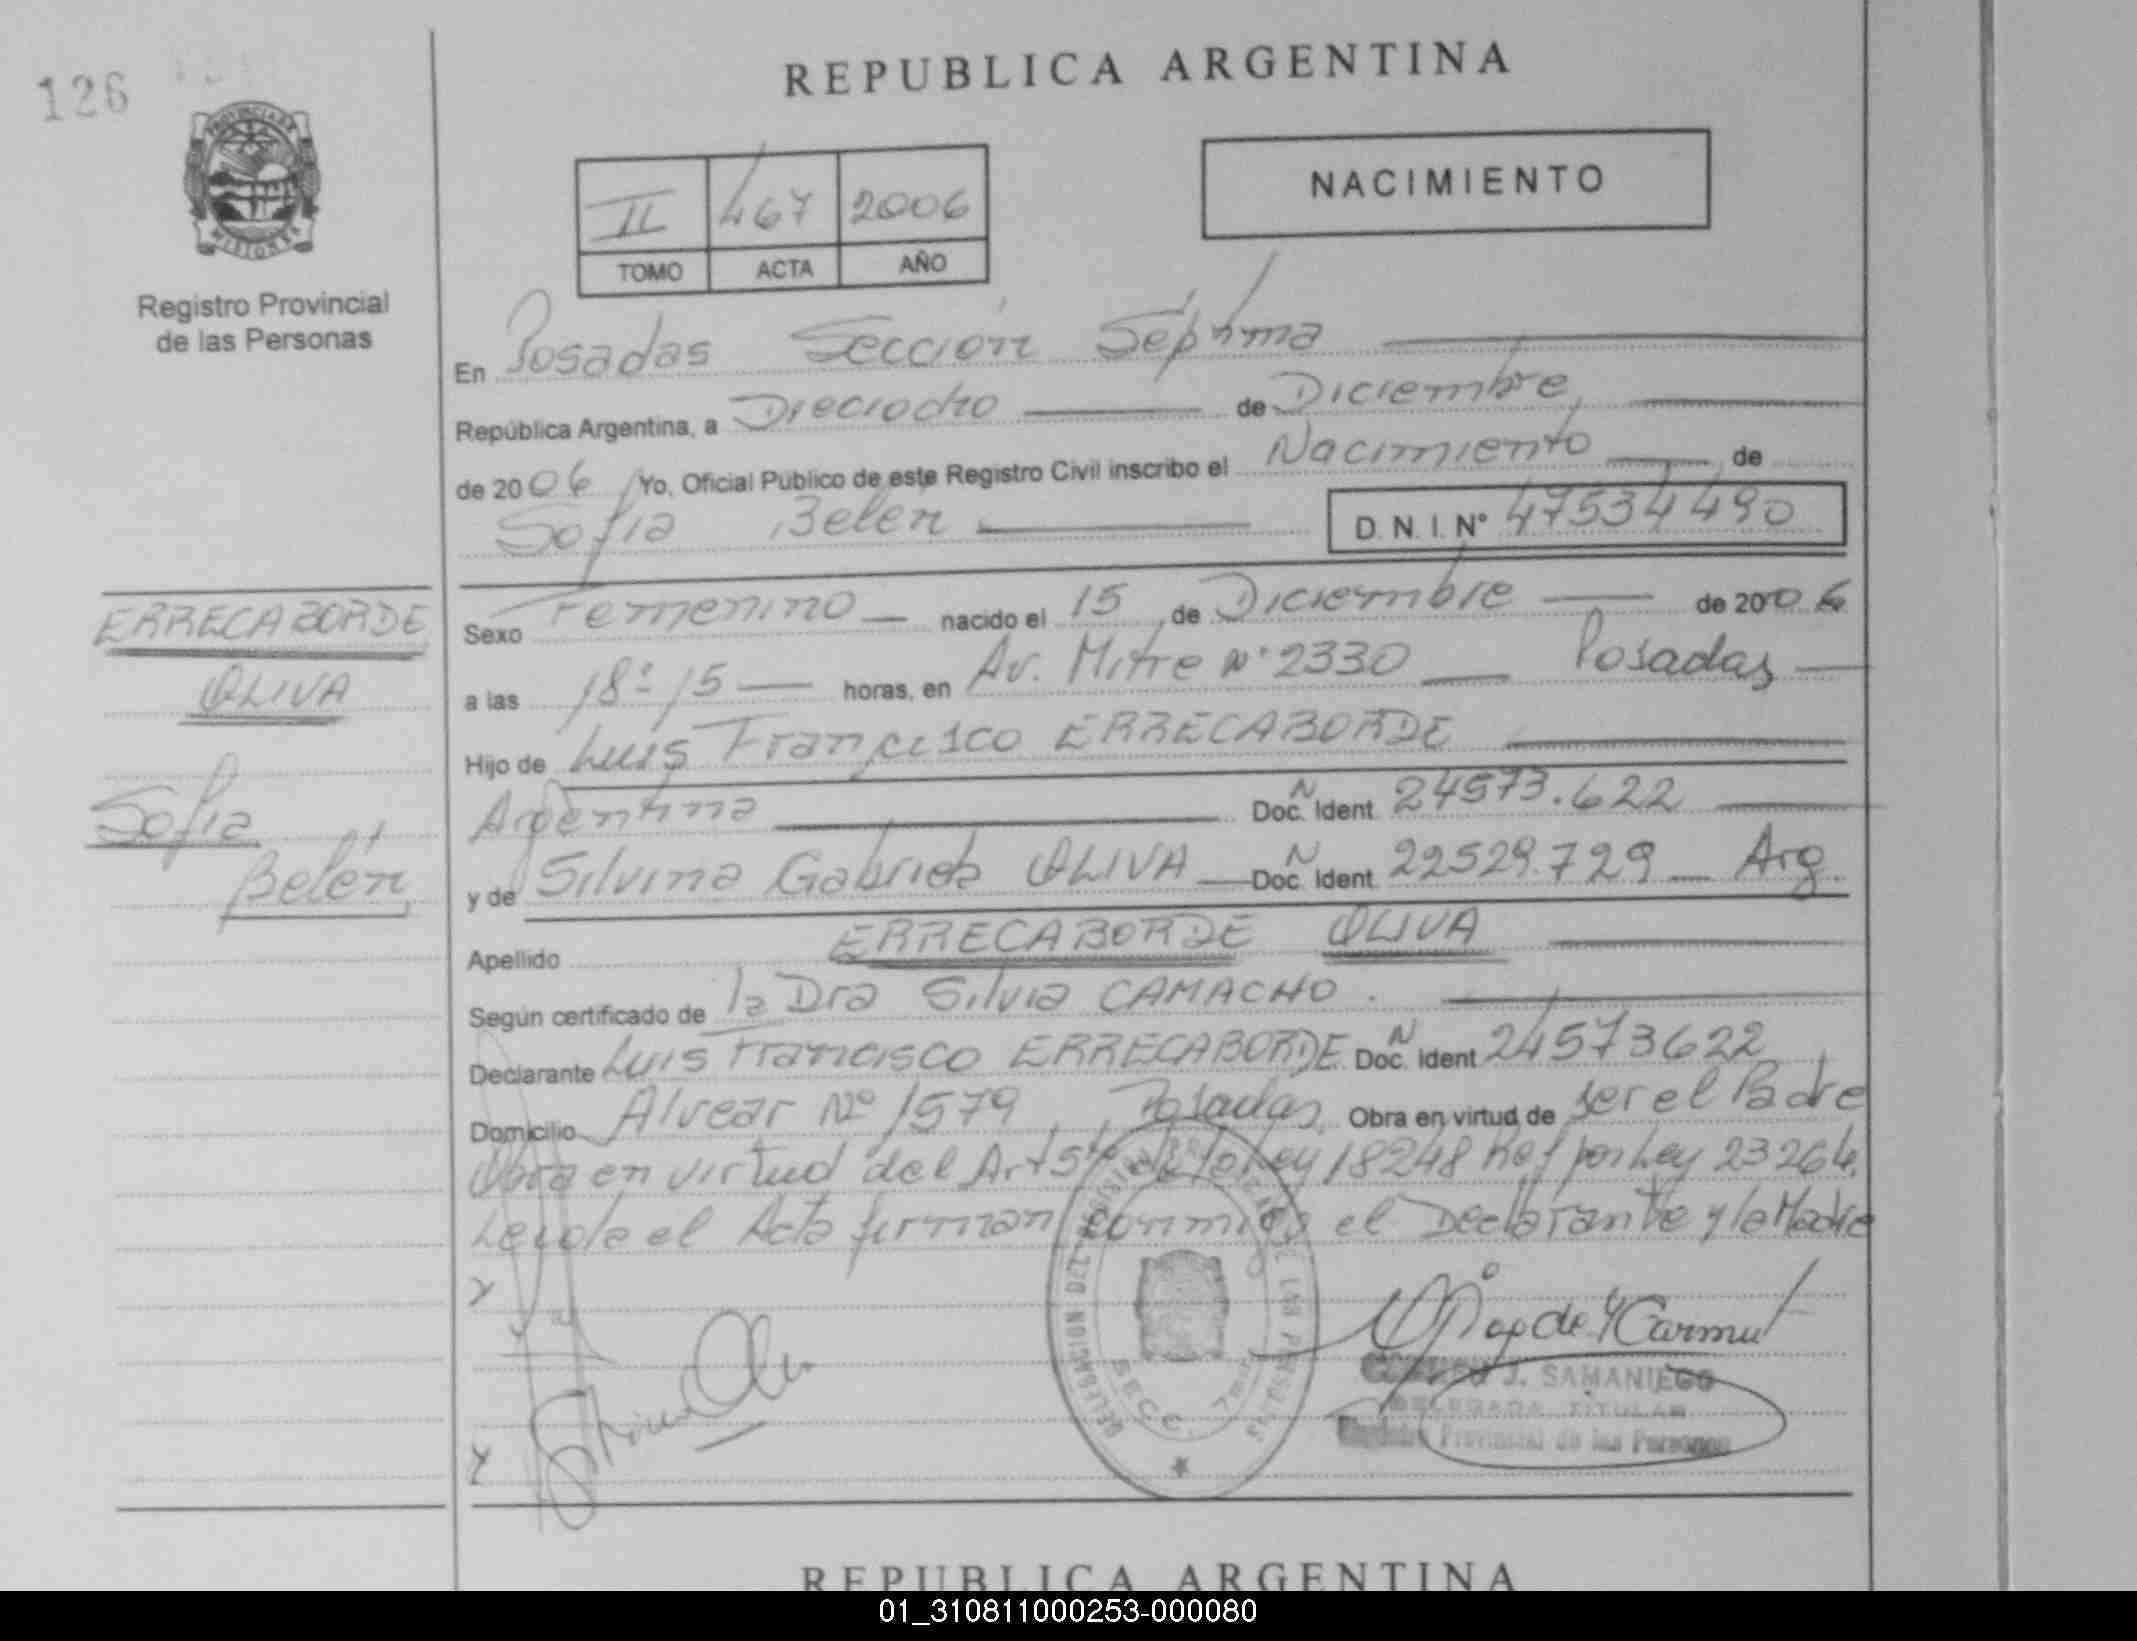 126
REPUBLICA ARGENTINA
PROVINCIA DE
MISIONES
Registro Provincial
de las Personas
II 467 2006
TOMO ACTA AÑO
NACIMIENTO
En Posadas Sección Séptima
República Argentina, a Dieciocho de Diciembre,
de 2006 Yo, Oficial Público de este Registro Civil inscribo el Nacimiento de
Sofía Belén D.N.I. N° 47534490
ERRECABORDE
OLIVA
Sofía
Belén,
Sexo Femenino nacido el 15 de Diciembre de 2006
a las 18:15 horas, en Av. Mitre N° 2330 Posadas
Hijo de Luis Francisco ERRECABORDE
Argentina Doc. N Ident 24573.622
y de Silvina Gabriela OLIVA Doc. N Ident 22529.729 Arg.
Apellido ERRECABORDE OLIVA
Según certificado de la Dra Silvia CAMACHO.
Declarante Luis Francisco ERRECABORDE Doc. N Ident 24573622
Domicilio Alvear Nº 1579, Posadas, Obra en virtud de ser el Padre
Obra en virtud del Art 5to de la Ley 18248 Ref por Ley 23264.
Leída el Acta firman conmigo el Declarante y la Madre
J. SAMANIEGO
DELEGADA TITULAR
Registro Provincial de las Personas
REPUBLICA ARGENTINA
01_310811000253-000080